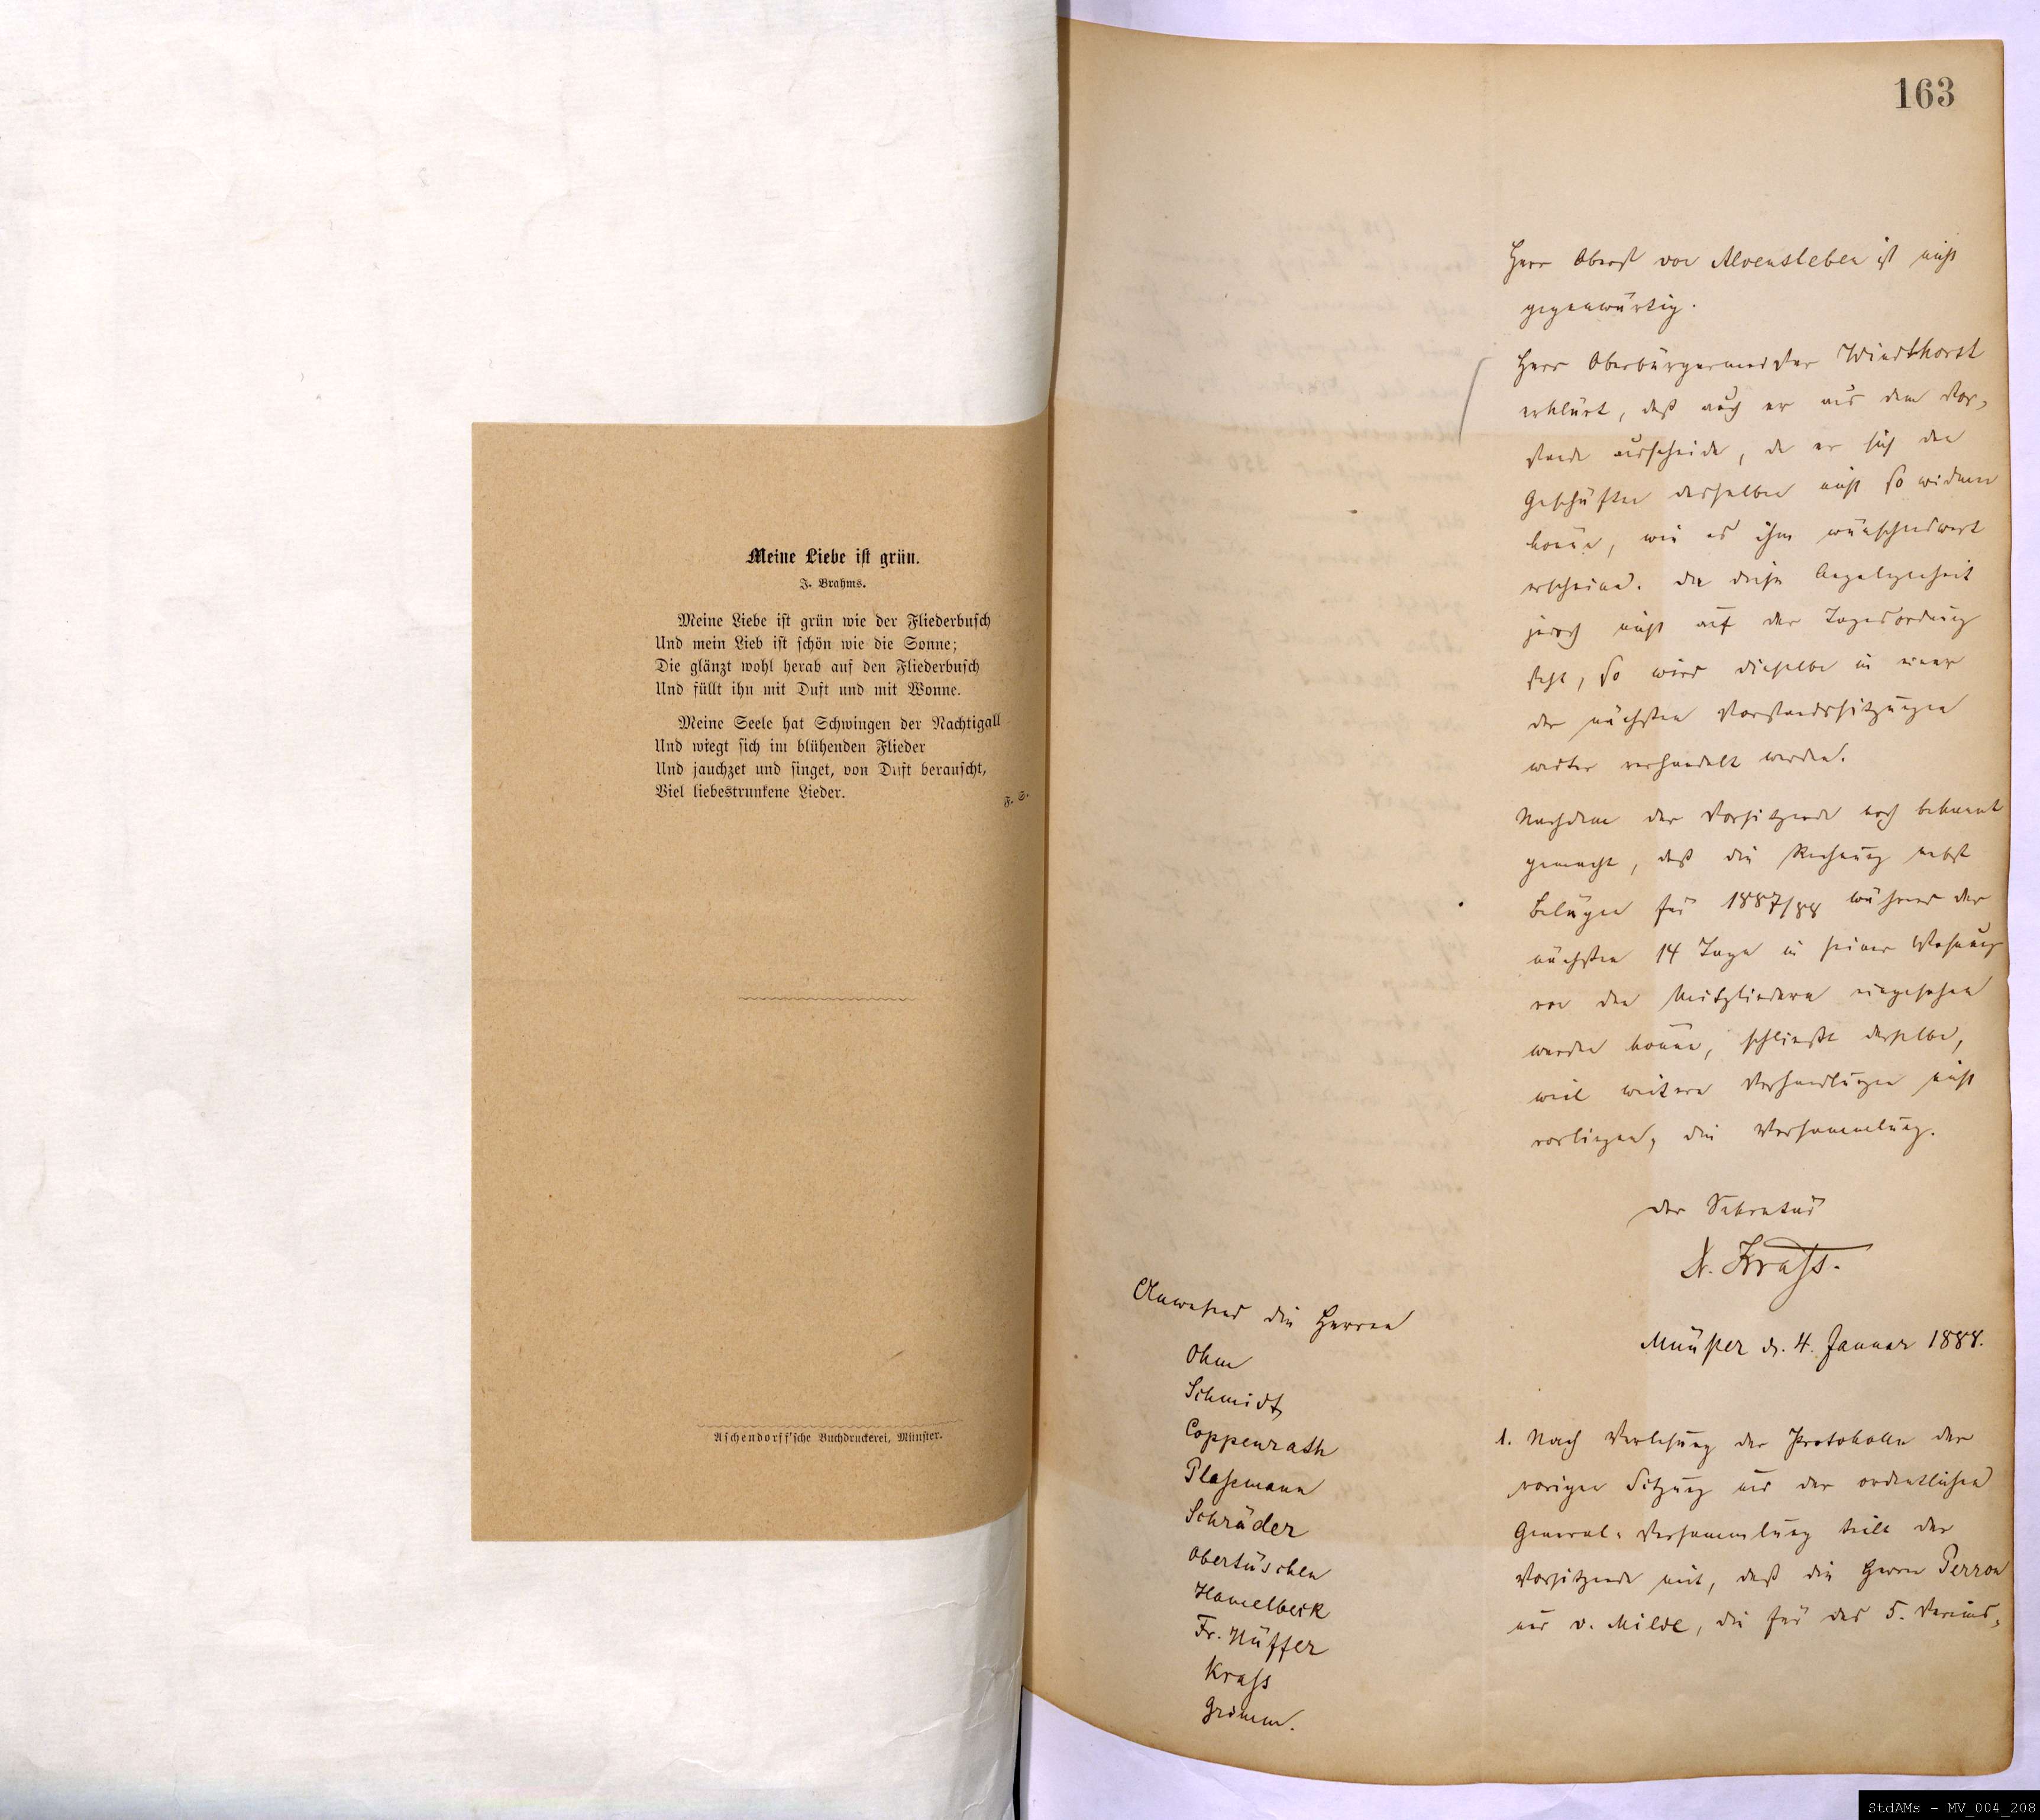 Meine Liebe ist grün.
J. Brahms.
Meine Liebe ist grün wie der Fliederbusch
Und mein Lieb ist schön wie die Sonne;
Die glänzt wohl herab auf den Fliederbusch
Und füllt ihn mit Duft und mit Wonne.
Meine Seele hat Schwingen der Nachtigall
Und wiegt sich im blühenden Flieder
Und jauchzet und singet, von Duft berauscht,
Viel liebestrunkene Lieder.
F. S.
Aschendorff'sche Buchdruckerei, Münster.
163
Herr Oberst von Alvensleben ist nicht
gegenwärtig.
Herr Oberbürgermeister Windthorst
erklärt, daß auch er aus dem Vor-
stande ausscheide, da er sich den
Geschäften desselben nicht so widmen
könne, wie es ihm wünschenswert
erscheine. Da diese Angelegenheit
jedoch nicht auf der Tagesordnung
steht, so wird dieselbe in einer
der nächsten Vorstandssitzungen
weiter verhandelt werden.
Nachdem der Vorsitzende noch bekannt
gemacht, daß die Rechnung nebst
Belägen für 1887/88 während der
nächsten 14 Tage in seiner Wohnung
von den Mitgliedern eingesehen
werden könne, schließt derselbe,
weil weitere Verhandlungen nicht
vorliegen, die Versammlung.
Der Sekretär
Dr. Krass.
Anwesend die Herren
Ohm
Schmidt
Coppenrath
Plassmann
Schräder
Obertüschen
Hamelbeck
Fr. Hüffer
Krass
Grimm.
Münster d. 4. Januar 1888.
1. Nach Verlesung der Protokolle der
vorigen Sitzung und der ordentlichen
General-Versammlung teilt der
Vorsitzende mit, daß die Herren Perron
und v. Milde, die für das 5. Vereins-
StdAMs - MV_004_208